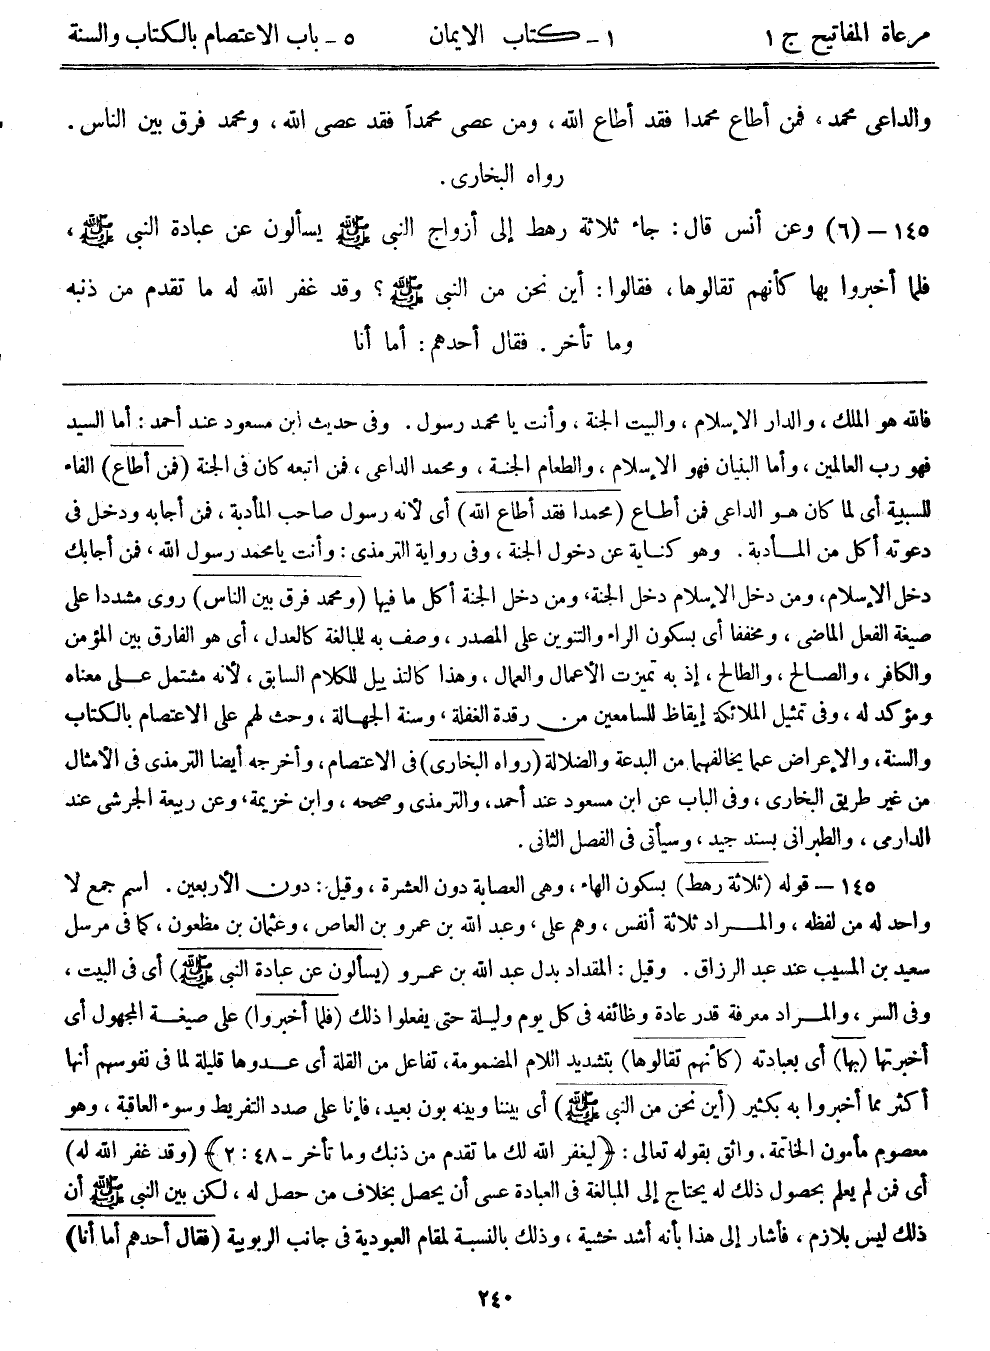 مرعاة المفاتيح ج ١ ١ - كتاب الايمان ٥ - باب الاعتصام بالكتاب والسنة
والداعى محمد، فمن أطاع محمدا فقد أطاع الله، ومن عصى محمداً فقد عصى الله، ومحمد فرق بين الناس.
رواه البخارى.
١٤٥ – (٦) وعن أنس قال: جاء ثلاثة رهط إلى أزواج النبى ﷺ يسألون عن عبادة النبى ﷺ،
فلما أخبروا بها كأنهم تقالوها، فقالوا: أين نحن من النبى ﷺ؟ وقد غفر الله له ما تقدم من ذنبه
وما تأخر. فقال أحدهم: أما أنا
فالله هو الملك، والدار الإسلام، والبيت الجنة، وأنت يا محمد رسول. وفى حديث ابن مسعود عند أحمد: أما السيد
فهو رب العالمين، وأما البنيان فهو الإسلام، والطعام الجنة، ومحمد الداعى، فمن اتبعه كان فى الجنة (فمن أطاع) الفاء
للسببية أى لما كان هو الداعى فمن أطاع (محمدا فقد أطاع الله) أى لأنه رسول صاحب المأدبة، فمن أجابه ودخل فى
دعوته أكل من المأدبة. وهو كناية عن دخول الجنة، وفى رواية الترمذى: وأنت يا محمد رسول الله، فمن أجابك
دخل الإسلام، ومن دخل الإسلام دخل الجنة، ومن دخل الجنة أكل ما فيها (ومحمد فرق بين الناس) روى مشددا على
صيغة الفعل الماضى، ومخففا أى بسكون الراء والتنوين على المصدر، وصف به للبالغة كالعدل، أى هو الفارق بين المؤمن
والكافر، والصالح، والطالح، إذ به تميزت الأعمال والعمال، وهذا كالتذييل للكلام السابق، لأنه مشتمل على معناه
ومؤكد له، وفى تمثيل الملائكة إيقاظ للسامعين من رقدة الغفلة، وسنة الجهالة، وحث لهم على الاعتصام بالكتاب
والسنة، والإعراض عما يخالفهما من البدعة والضلالة (رواه البخارى) فى الاعتصام، وأخرجه أيضا الترمذى فى الأمثال
من غير طريق البخارى، وفى الباب عن ابن مسعود عند أحمد، والترمذى وصححه، وابن خزيمة، وعن ربيعة الجرشى عند
الدارمى، والطبرانى بسند جيد، وسيأتى فى الفصل الثانى.
١٤٥ – قوله (ثلاثة رهط) بسكون الهاء، وهى العصابة دون العشرة، وقيل: دون الأربعين. اسم جمع لا
واحد له من لفظه، والمراد ثلاثة أنفس، وهم على، وعبد الله بن عمرو بن العاص، وعثمان بن مظعون، كما فى مرسل
سعيد بن المسيب عند عبد الرزاق. وقيل: المقداد بدل عبد الله بن عمرو (يسألون عن عبادة النبى ﷺ) أى فى البيت،
وفى السر، والمراد معرفة قدر عادة وظائفه فى كل يوم وليلة حتى يفعلوا ذلك (فلما أخبروا) على صيغة المجهول أى
أخبرتها (بها) أى بعبادته (كأنهم تقالوها) بتشديد اللام المضمومة، تفاعل من القلة أى عدوها قليلة لما فى نفوسهم أنها
أكثر مما أخبروا به بكثير (أين نحن من النبى ﷺ) أى بيننا وبينه بون بعيد، فإنا على صدد التفريط وسوء العاقبة، وهو
معصوم مأمون الخاتمة. واثق بقوله تعالى: ﴿ليغفر الله لك ما تقدم من ذنبك وما تأخر - ٤٨: ٢﴾ (وقد غفر الله له)
أى فمن لم يعلم بحصول ذلك له يحتاج إلى المبالغة فى العبادة عسى أن يحصل بخلاف من حصل له، لكن بين النبى ﷺ أن
ذلك ليس بلازم، فأشار إلى هذا بأنه أشد خشية، وذلك بالنسبة لمقام العبودية فى جانب الربوبية (فقال أحدهم أما أنا)
٢٤٠